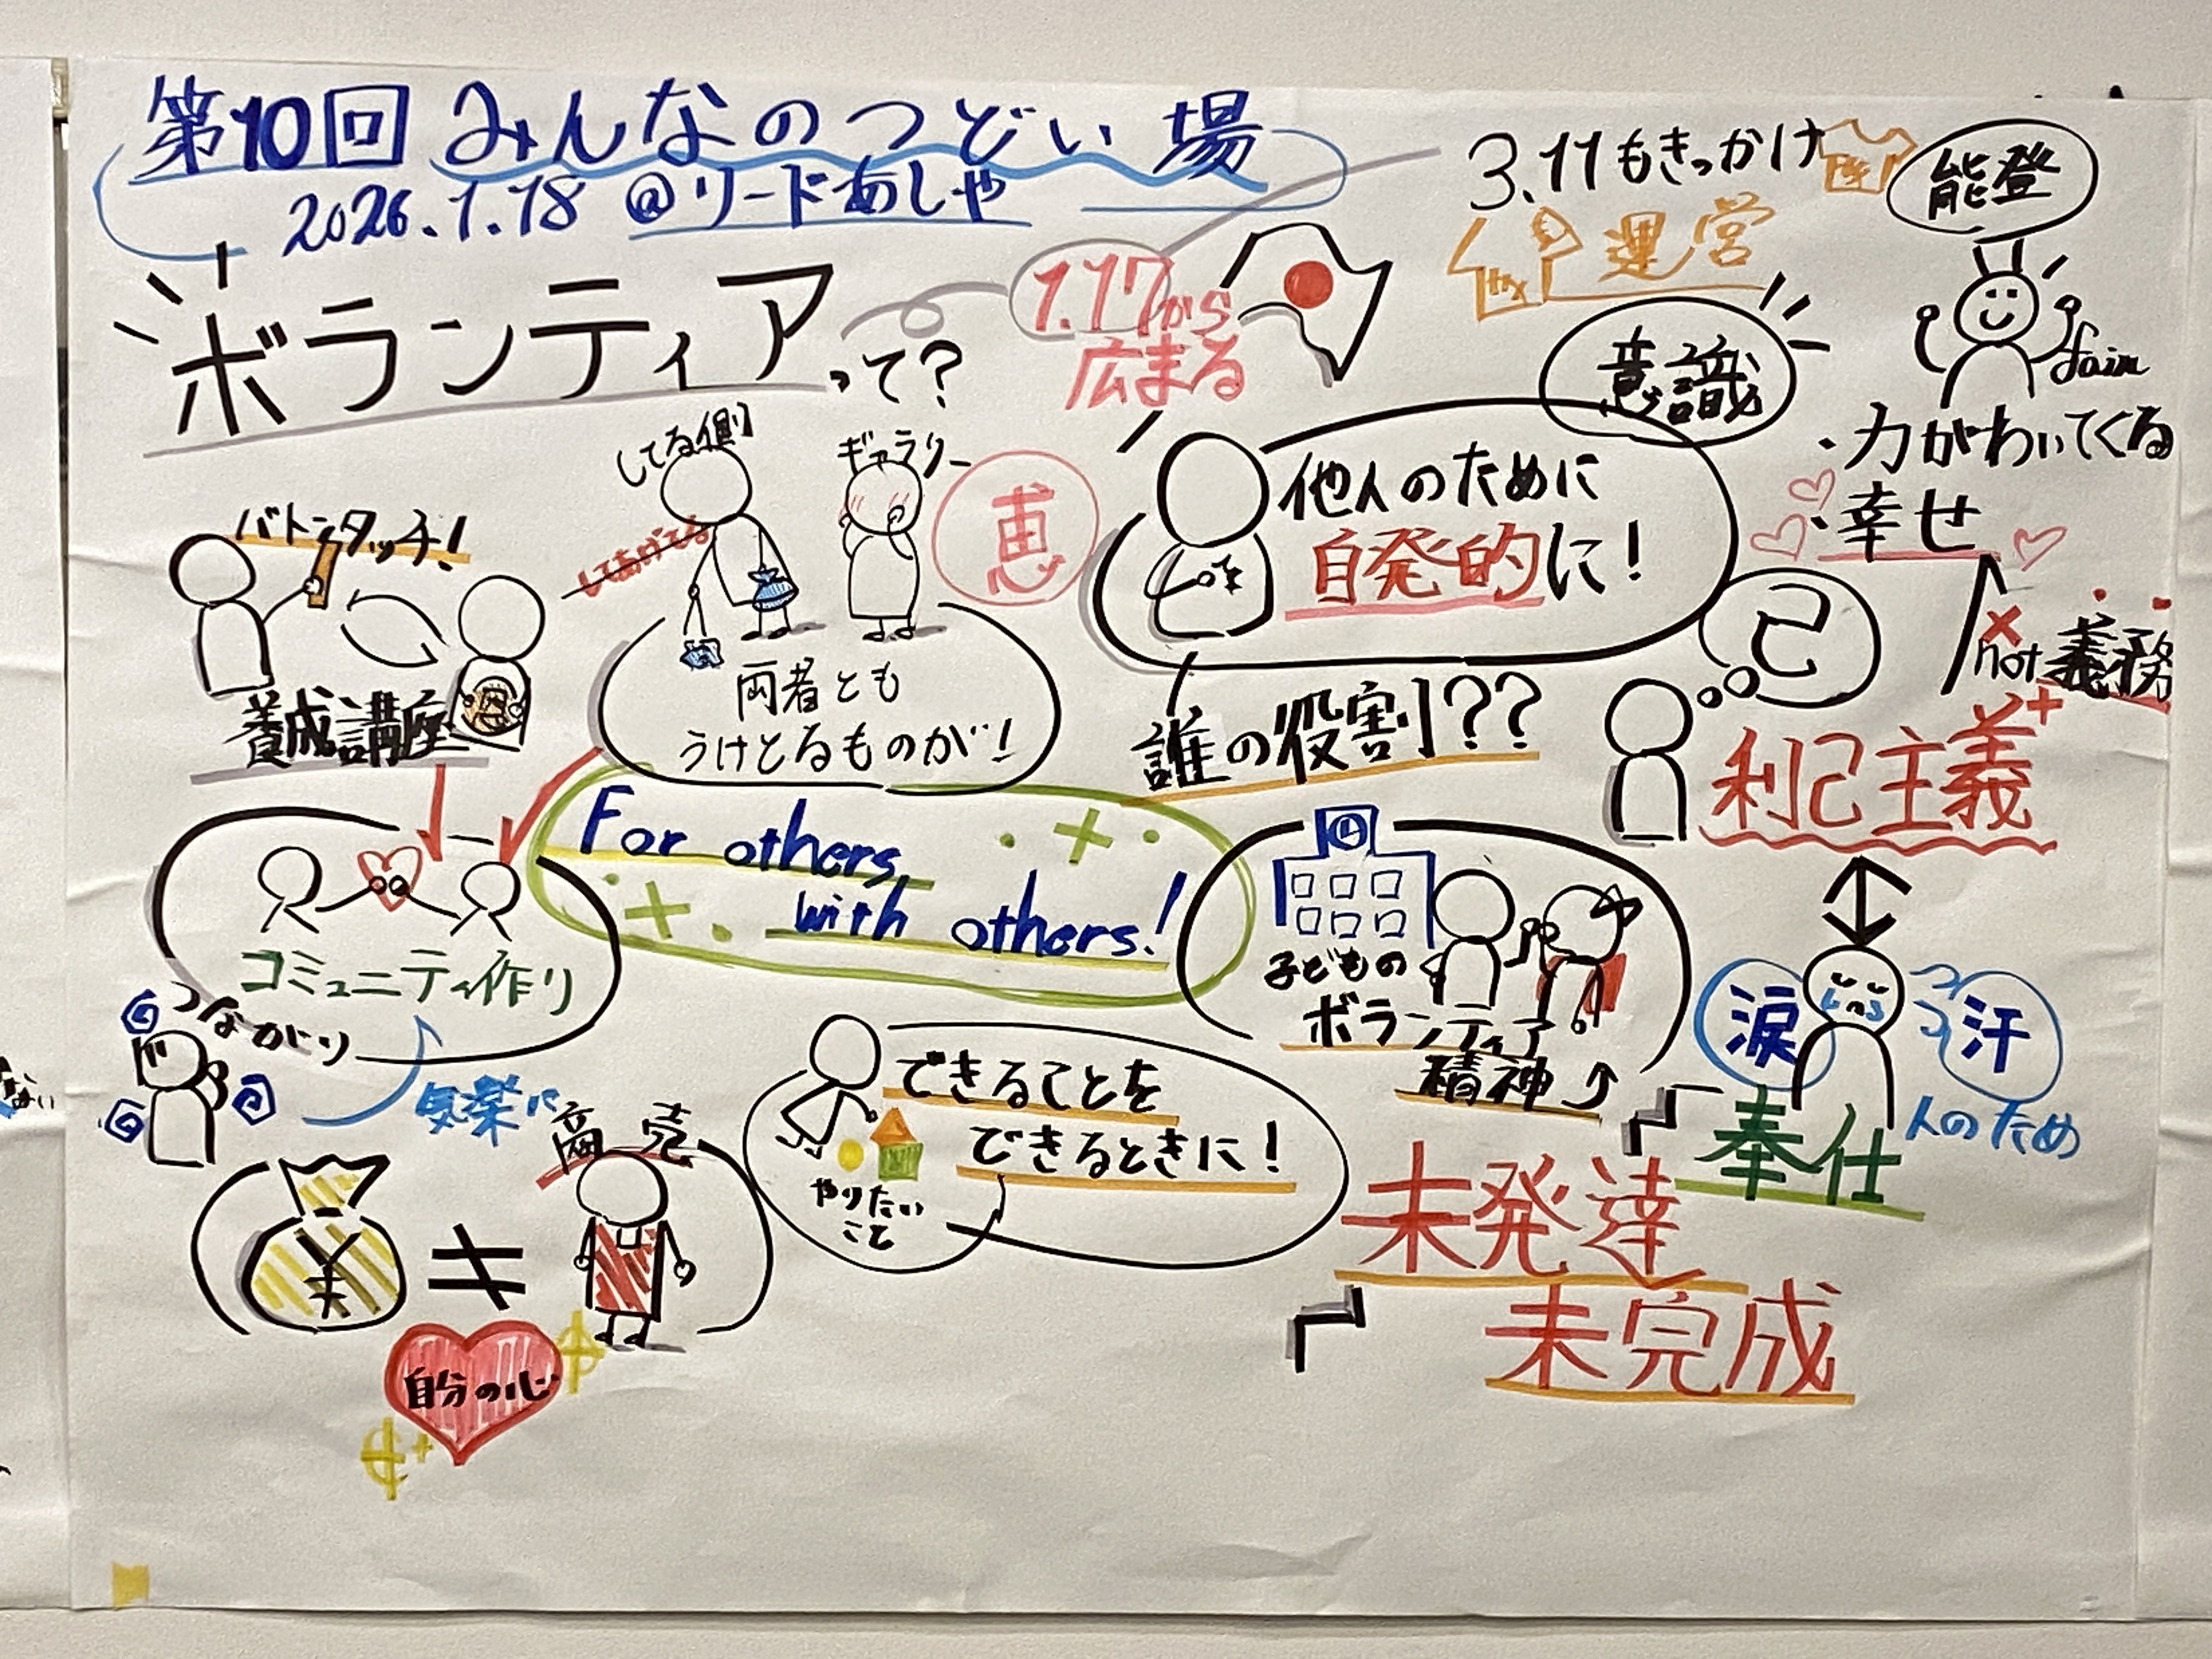 第10回 みんなのつどい場
2026.1.18 @リードあしや
ボランティアって?
1.17から
広まる
3.11もきっかけ
運営
能登
意識
・力がわいてくる
・幸せ
not 義務
してる側
してあげてる
ギャラリー
恵
両者とも
うけとるものが!
他人のために
自発的に!
誰の役割??
己
利己主義
バトンタッチ!
養成講座
For others,
with others!
コミュニティ作り
つながり
気楽に
子どもの
ボランティア
精神
涙
汗
人のため
奉仕
できることを
できるときに!
やりたい
こと
商売
¥ ≠
自分の心
未発達
未完成